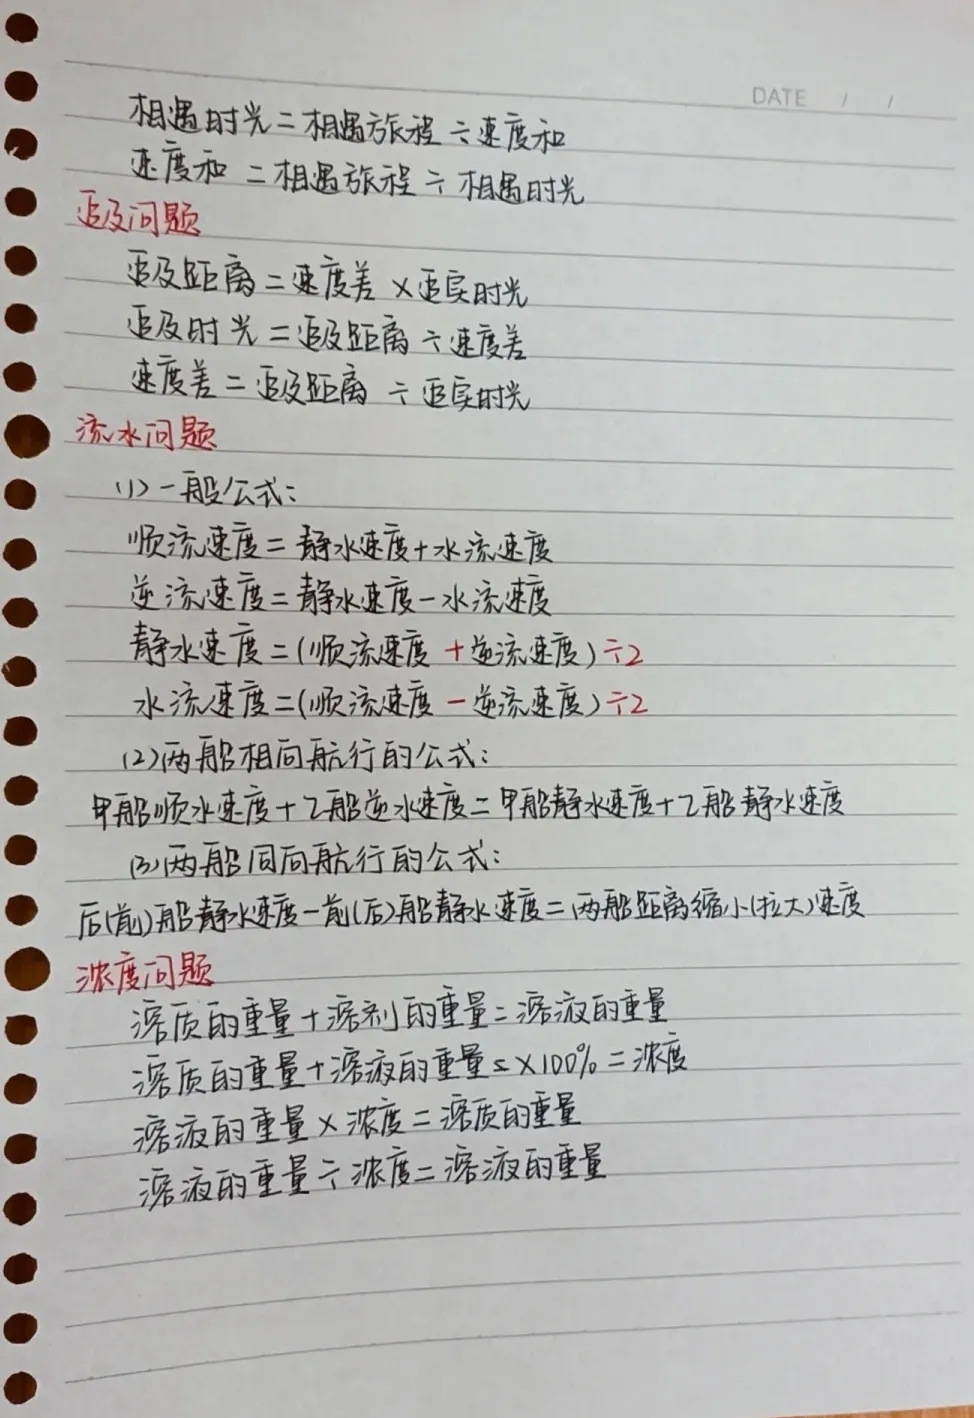 DATE / /
相遇时光=相遇旅程÷速度和
速度和=相遇旅程÷相遇时光
追及问题
追及距离=速度差×追实时光
追及时光=追及距离÷速度差
速度差=追及距离÷追实时光
流水问题
(1)一般公式:
顺流速度=静水速度+水流速度
逆流速度=静水速度-水流速度
静水速度=(顺流速度+逆流速度)÷2
水流速度=(顺流速度-逆流速度)÷2
(2)两船相向航行的公式:
甲船顺水速度+乙船逆水速度=甲船静水速度+乙船静水速度
(3)两船同向航行的公式:
后(前)船静水速度-前(后)船静水速度=两船距离缩小(拉大)速度
浓度问题
溶质的重量+溶剂的重量=溶液的重量
溶质的重量+溶液的重量s×100%=浓度
溶液的重量×浓度=溶质的重量
溶液的重量÷浓度=溶液的重量